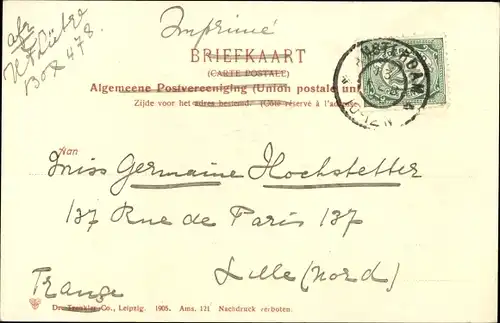 Imprimé
Box 478.
BRIEFKAART
(CARTE POSTALE)
Algemeene Postvereeniging (Union postale uni
Zijde voor het adres bestemd. (Côté réservé à l'adresse
AMSTERDAM
Aan
Miss Germaine Hochstetter
137 Rue de Paris 137
Lille (Nord)
Frange
Dr. Trenkler Co., Leipzig. 1905. Ams. 121 Nachdruck verboten.